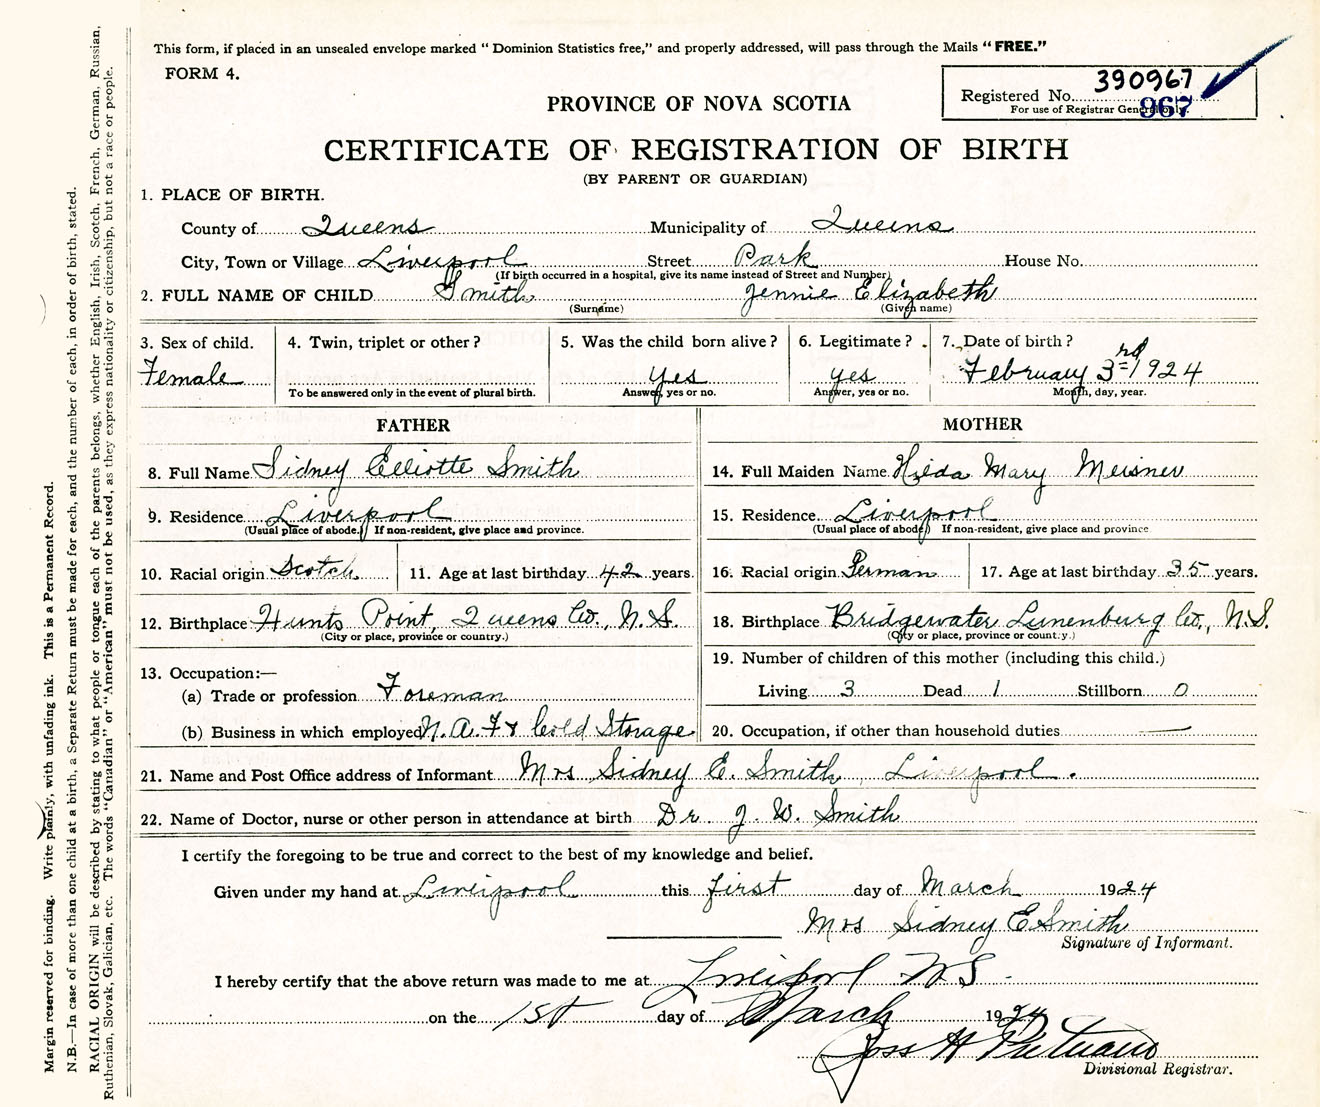 This form, if placed in an unsealed envelope marked “ Dominion Statistics free,” and properly addressed, will pass through the Mails “ FREE.”
FORM 4.
Registered No. 390967
967
For use of Registrar General only.
PROVINCE OF NOVA SCOTIA
CERTIFICATE OF REGISTRATION OF BIRTH
(BY PARENT OR GUARDIAN)
1. PLACE OF BIRTH.
County of Queens Municipality of Queens
City, Town or Village Liverpool Street Park House No.
(If birth occurred in a hospital, give its name instead of Street and Number)
2. FULL NAME OF CHILD Smith Jennie Elizabeth
(Surname) (Given name)
3. Sex of child. 4. Twin, triplet or other ? 5. Was the child born alive ? 6. Legitimate ? 7. Date of birth ?
Female yes yes February 3rd 1924
To be answered only in the event of plural birth. Answer, yes or no. Answer, yes or no. Month, day, year.
FATHER MOTHER
8. Full Name Sidney Elliotte Smith 14. Full Maiden Name Hilda Mary Meisner
9. Residence Liverpool 15. Residence Liverpool
(Usual place of abode.) If non-resident, give place and province. (Usual place of abode) If non-resident, give place and province
10. Racial origin Scotch 11. Age at last birthday 42 years. 16. Racial origin German 17. Age at last birthday 35 years.
12. Birthplace Hunts Point, Queens Co., N.S. 18. Birthplace Bridgewater Lunenburg Co., N.S.
(City or place, province or country.) (City or place, province or country.)
13. Occupation:— 19. Number of children of this mother (including this child.)
(a) Trade or profession Foreman Living 3 Dead 1 Stillborn 0
(b) Business in which employed N. A. F & Cold Storage 20. Occupation, if other than household duties —
21. Name and Post Office address of Informant Mrs Sidney E. Smith, Liverpool.
22. Name of Doctor, nurse or other person in attendance at birth Dr. J. W. Smith
I certify the foregoing to be true and correct to the best of my knowledge and belief.
Given under my hand at Liverpool this first day of March 1924
Mrs Sidney E Smith
Signature of Informant.
I hereby certify that the above return was made to me at Liverpool N S
on the 1st day of March 1924
H
Divisional Registrar.
Margin reserved for binding. Write plainly, with unfading ink. This is a Permanent Record.
N.B.—In case of more than one child at a birth, a Separate Return must be made for each, and the number of each, in order of birth, stated.
RACIAL ORIGIN will be described by stating to what people or tongue each of the parents belongs, whether English, Irish, Scotch, French, German, Russian,
Ruthenian, Slovak, Galician, etc. The words “Canadian” or “American” must not be used, as they express nationality or citizenship, but not a race or people.